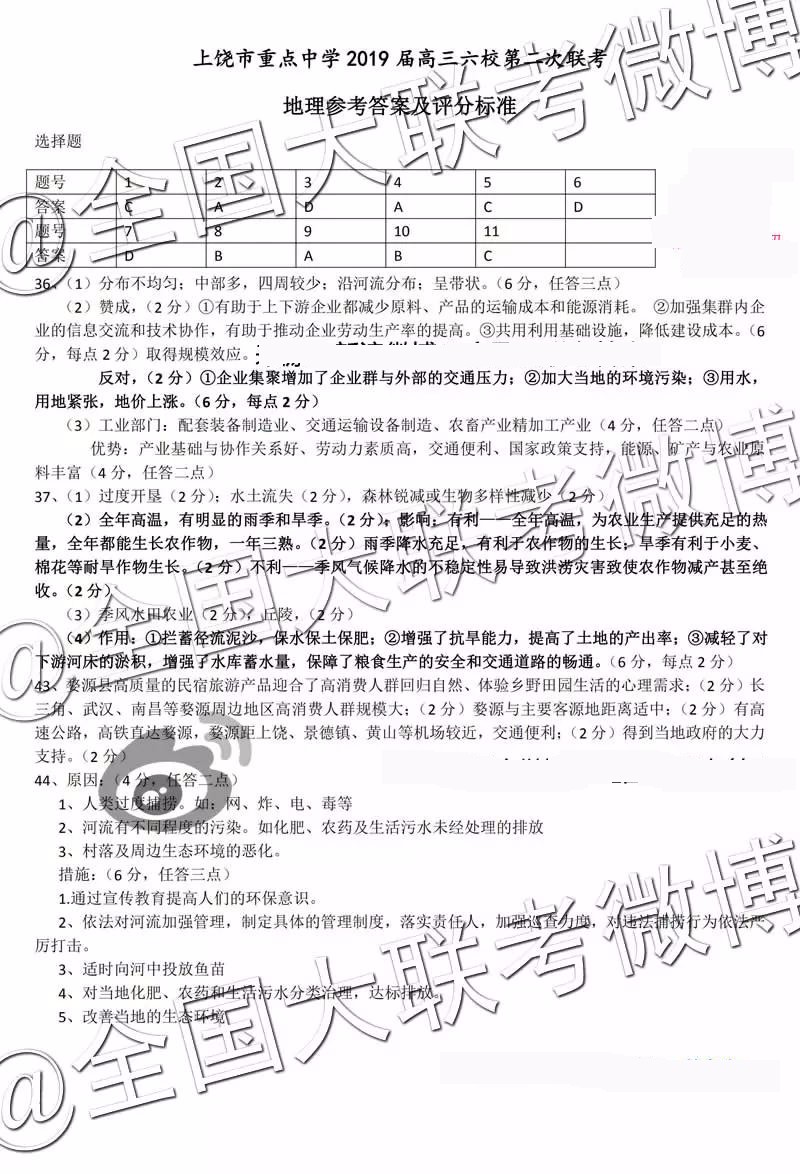 上饶市重点中学 2019 届高三六校第二次联考
地理参考答案及评分标准
选择题
题号 1 2 3 4 5 6
答案 C A D A C D
题号 7 8 9 10 11
答案 D B A B C
36、（1）分布不均匀；中部多，四周较少；沿河流分布；呈带状。（6 分，任答三点）
（2）赞成，（2 分）①有助于上下游企业都减少原料、产品的运输成本和能源消耗。 ②加强集群内企
业的信息交流和技术协作，有助于推动企业劳动生产率的提高。③共用利用基础设施，降低建设成本。（6
分，每点 2 分）取得规模效应。
反对，（2 分）①企业集聚增加了企业群与外部的交通压力；②加大当地的环境污染；③用水，
用地紧张，地价上涨。（6 分，每点 2 分）
（3）工业部门：配套装备制造业、交通运输设备制造、农畜产业精加工产业（4 分，任答二点）
优势：产业基础与协作关系好、劳动力素质高，交通便利、国家政策支持，能源、矿产与农业原
料丰富（4 分，任答二点）
37、（1）过度开垦（2 分）；水土流失（2 分），森林锐减或生物多样性减少（2 分）
（2）全年高温，有明显的雨季和旱季。（2 分）；影响：有利——全年高温，为农业生产提供充足的热
量，全年都能生长农作物，一年三熟。（2 分）雨季降水充足，有利于农作物的生长；旱季有利于小麦、
棉花等耐旱作物生长。（2 分）不利——季风气候降水的不稳定性易导致洪涝灾害致使农作物减产甚至绝
收。（2 分）
（3）季风水田农业（2 分），丘陵，（2 分）
（4）作用：①拦蓄径流泥沙，保水保土保肥；②增强了抗旱能力，提高了土地的产出率；③减轻了对
下游河床的淤积，增强了水库蓄水量，保障了粮食生产的安全和交通道路的畅通。（6 分，每点 2 分）
43、婺源县高质量的民宿旅游产品迎合了高消费人群回归自然、体验乡野田园生活的心理需求；（2 分）长
三角、武汉、南昌等婺源周边地区高消费人群规模大；（2 分）婺源与主要客源地距离适中；（2 分）有高
速公路，高铁直达婺源，婺源距上饶、景德镇、黄山等机场较近，交通便利；（2 分）得到当地政府的大力
支持。（2 分）
44、原因：（4 分，任答二点）
1、人类过度捕捞。如：网、炸、电、毒等
2、河流有不同程度的污染。如化肥、农药及生活污水未经处理的排放
3、村落及周边生态环境的恶化。
措施：（6 分，任答三点）
1.通过宣传教育提高人们的环保意识。
2、依法对河流加强管理，制定具体的管理制度，落实责任人，加强巡查力度，对违法捕捞行为依法严
厉打击。
3、适时向河中投放鱼苗
4、对当地化肥、农药和生活污水分类治理，达标排放。
5、改善当地的生态环境
@全国大联考微博
@全国大联考微博
@全国大联考微博